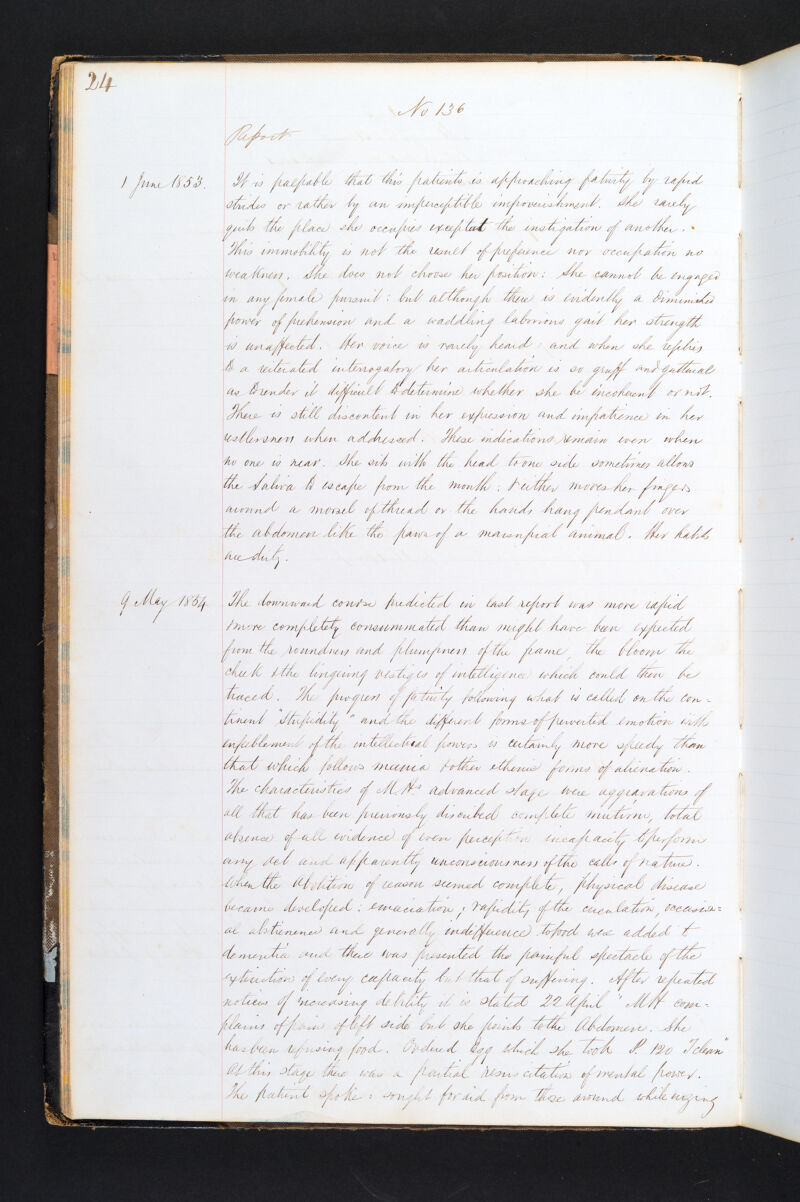 24
No 136
Report
1 June 1853. It is palpable that this patients is approaching fatuity by rapid
strides or rather by an imperceptible impoverishment. She rarely
quits the place she occupies except at the instigation of another.
This immobility is not the result of preference nor occupation no
weakness. She does not choose her position: She cannot be engaged
in any female pursuit: but although there is evidently a diminished
power of prehension and a waddling laborious gait her strength
is unaffected. Her voice is rarely heard: and when she replies
to a reiterated interrogatory her articulation is so gruff and guttural
as to render it difficult to determine whether she be incoherent or not.
There is still discontent in her expression and impatience in her
restlessness when addressed. These indications remain even when
no one is near. She sits with the head to one side sometimes allows
the saliva to escape from the mouth: & either moves her fingers
around a morsel of thread or the hands hang pendant over
the abdomen like the paws of a marsupial animal. Her habits
are dirty.
9 May 1854 The downward course predicted in last report was more rapid
& more completely consummated than might have been expected
from the roundness and plumpness of the frame, the bloom the
cheek & the lingering vestiges of intelligence which could then be
traced. The progress of fatuity following what is called on the con-
tinent "Stupidity" and the different forms of perverted emotion with
enfeeblement of the intellectual powers is certainly more speedy than
that which follows mania & other sthenic forms of alienation.
The characteristics of M. Hs advanced stage were aggravations of
all that has been previously described complete mutism, total
absence of all evidence of even perception incapacity to perform
any act and apparently unconsciousness of the calls of nature.
When the abolition of reason seemed complete, physical disease
became developed: emaciation, rapidity of the circulation, occasion=
al abstinence and generally indifference to food was added to
dementia and there was presented the painful spectacle of the
extinction of every capacity but that of suffering. After repeated
notices of increasing debility it is stated 22 April "M H com-
plains of pain of left side but she points to the Abdomen. She
has been refusing food. Ordered Egg which she took P. 120 T clean"
At this stage there was a partial resuscitation of mental power.
The patient spoke: sought for aid from those around while urging